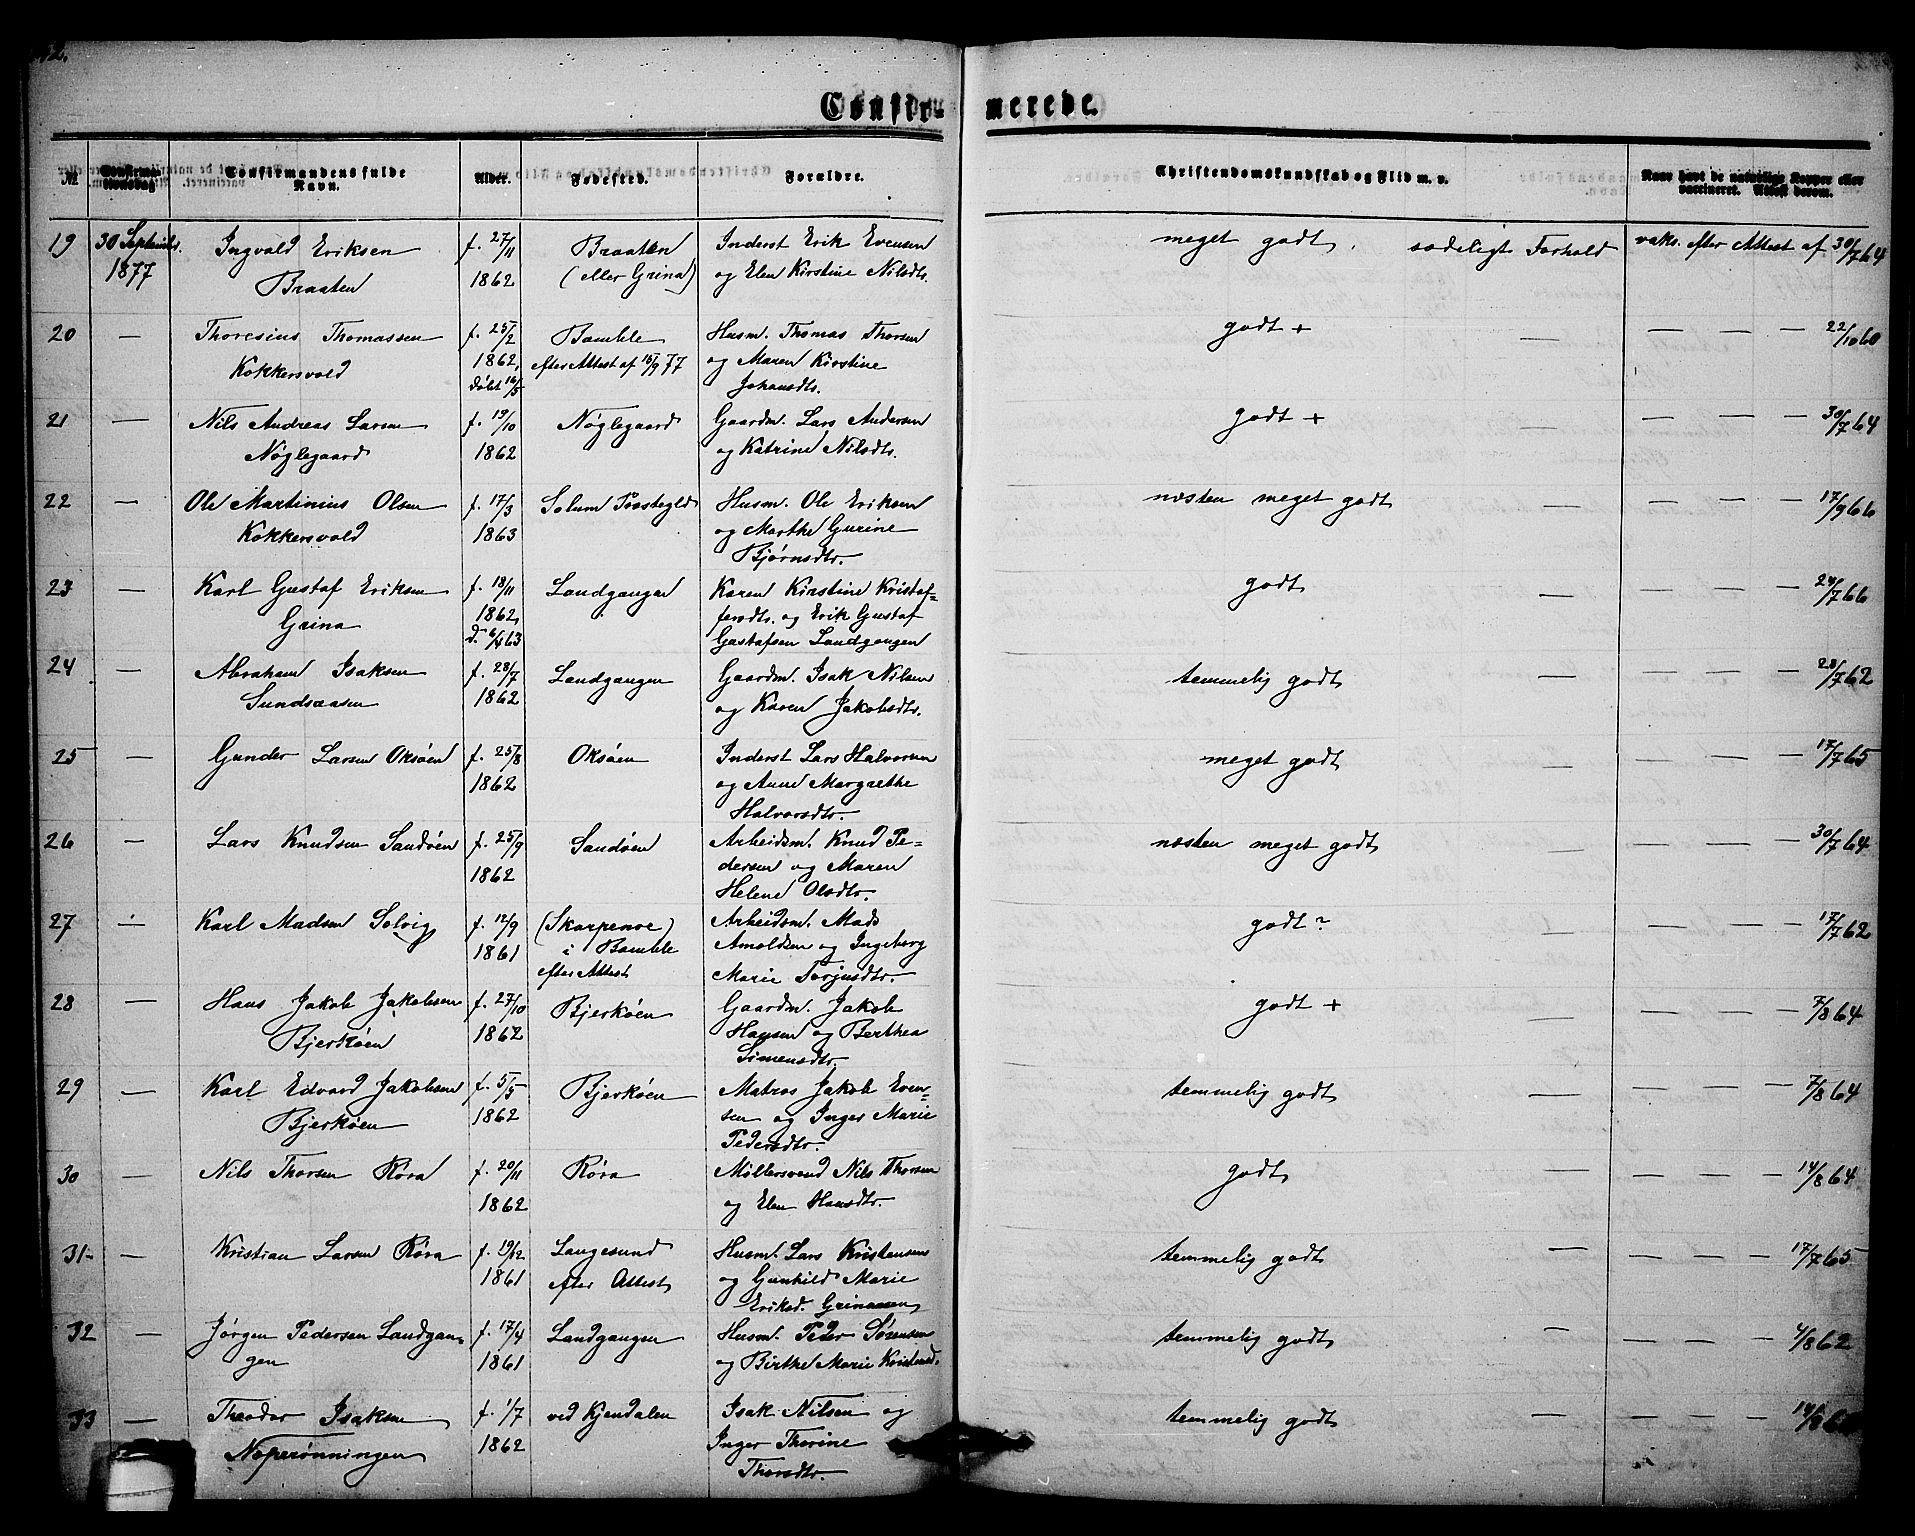 Confirmerede.
№ Confirmationsdag Confirmandens fulde Navn. Alder. Fødested. Forældre. Christendomskundskab og Flid m. v. Naar havt de naturlige Kopper eller vaccineret. Attest derom.
19 30 Septembr. Ingvald Eriksen f. 27/11 Braaten Inderst Erik Evensen meget godt, sædeligt Forhold vaks. efter Attest af 30/7 64
1877 Braaten 1862 (eller Grina) og Elen Kirstine Nilsdtr.
20 — Thoresius Thomassen f. 25/2 Bamble Husm. Thomas Thorsen godt + — — — — 22/10 60
Kokkersvold 1862, efter Attest af 15/9 77 og Maren Kirstine
døbt 16/5 Johansdtr.
21 — Nils Andreas Larsen f. 19/10 Nøglegaard Gaardm. Lars Andersen godt + — — — — 30/7 64
Nøglegaard 1862 og Katrine Nilsdtr.
22 — Ole Martinius Olsen f. 17/3 Solum Præstegld Husm. Ole Eriksen næsten meget godt — — — — 17/9 66
Kokkersvold 1863 og Marthe Gurine
Bjørnsdtr.
23 — Karl Gustaf Eriksen f. 18/11 Landgangen Karen Kirstine Kristof- godt — — — — 24/7 66
Grina 1862, fersdtr. og Erik Gustaf
d. 6/4 63 Gustafsen Landgangen
24 — Abraham Isaksen f. 28/7 Landgangen Gaardm. Isak Nilsen temmelig godt — — — — 28/7 62
Sundsaasen 1862 og Karen Jakobsdtr.
25 — Gunder Larsen Oksøen f. 25/8 Oksøen Inderst Lars Halvorsen meget godt — — — — 17/7 65
1862 og Anne Margrethe
Halvorsdtr.
26 — Lars Knudsen Sandøen f. 25/9 Sandøen Arbeidsm. Knud Pe- næsten meget godt — — — — 30/7 64
1862 dersen og Maren
Helene Olsdtr.
27 — Karl Madsen Solvig f. 12/9 (Skarpenoe) Arbeidsm. Mads godt ? — — — — 17/7 62
1861 i Bamble Arnoldsen og Ingeborg
efter Attest Marie Torjusdtr.
28 — Hans Jakob Jakobsen f. 27/10 Bjerkøen Gaardm. Jakob godt + — — — — 7/8 64
Bjerkøen 1862 Hansen og Berthea
Simensdtr.
29 — Karl Edvard Jakobsen f. 5/5 Bjerkøen Matros Jakob Even- temmelig godt — — — — 7/8 64
Bjerkøen 1862 sen og Inger Marie
Pedersdtr.
30 — Nils Thorsen Røra f. 20/11 Røra Møllersvend Nils Thorsen godt — — — — 14/8 64
1862 og Elen Hansdtr.
31 — Kristian Larsen Røra f. 19/12 Langesund Husm. Lars Kristensen temmelig godt — — — — 17/7 65
1861 efter Attest og Gunhild Marie
Eriksd. Grinaasen
32 — Jørgen Pedersen Landgan- f. 17/4 Landgangen Husm. Peder Sørensen temmelig godt — — — — 4/8 62
gen 1861 og Birthe Marie Kristensd.
33 — Theodor Isaksen f. 1/7 ved Kjendalen Isak Nilsen og temmelig godt — — — — 14/8
Noperønningen 1862 Inger Thorine
Thorsdtr.